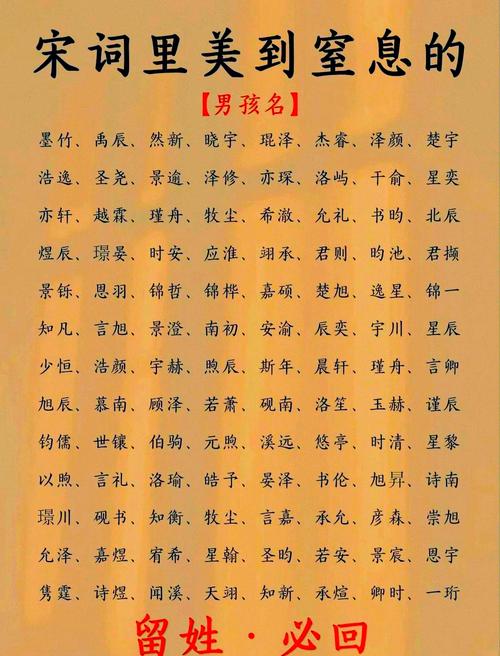 宋词里美到窒息的
【男孩名】
墨竹、禹辰、然新、晓宇、琨泽、杰睿、泽颜、楚宇
浩逸、圣尧、景逾、泽修、亦琛、洛屿、干俞、星奕
亦轩、越霖、瑾舟、牧尘、希澈、允礼、书昀、北辰
煜辰、璟晏、时安、应淮、翊承、君则、昀池、君撷
景铄、思羽、锦哲、锦桦、嘉硕、楚旭、逸星、锦一
知凡、言旭、景澄、南初、安渝、辰奕、宇川、星辰
少恒、浩颜、宇赫、煦辰、斯年、晨轩、瑾舟、言卿
旭辰、慕南、顾泽、若萧、砚南、洛笙、玉赫、谨辰
钧儒、世镶、伯驹、元煦、溪远、悠亭、时清、星黎
以煦、言礼、洛瑜、皓予、晏泽、书伦、旭昇、诗南
璟川、砚书、知衡、牧尘、言嘉、承允、彦森、崇旭
允泽、嘉煜、宥希、星翰、圣昀、若安、景宸、恩宇
隽霆、诗煜、闻溪、天翊、知新、承煊、卿时、一珩
留姓·必回